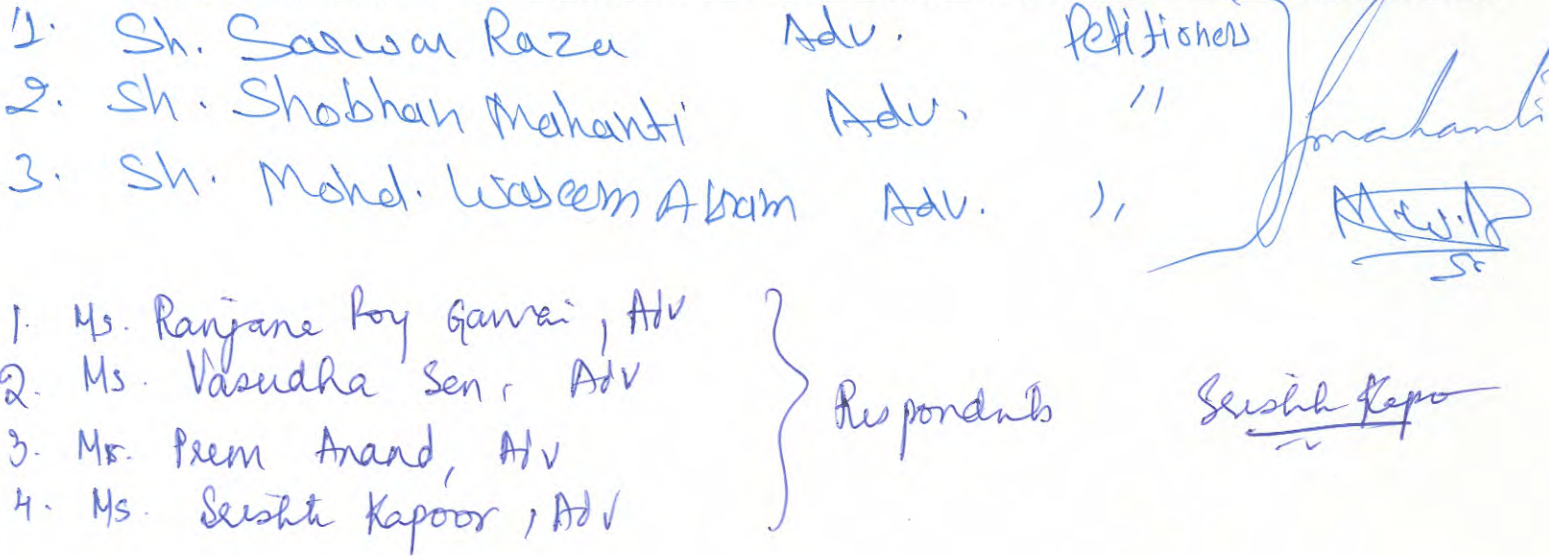 1. Sh. Sarwar Raza Adv. Petitioners
2. Sh. Shobhan Mahanti Adv. "
3. Sh. Mohd. Waseem Akram Adv. "
Smahanti
1. Ms. Ranjana Roy Gawai, Adv
2. Ms. Vasudha Sen, Adv
3. Mr. Prem Anand, Adv
4. Ms. Srishti Kapoor, Adv
Respondents